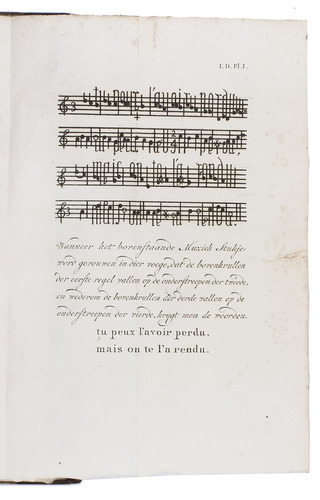 I.D.Pl.I.
Wanneer het bovenstaande Muziek Stukje
word gevouwen in dier voege, dat de bovenkrullen
der eerste regel vallen op de onderstreepen der tweede,
en wederom de bovenkrullen der derde vallen op de
onderstreepen der vierde, krygt men de woorden.
tu peux l'avoir perdu,
mais on te l'a rendu.